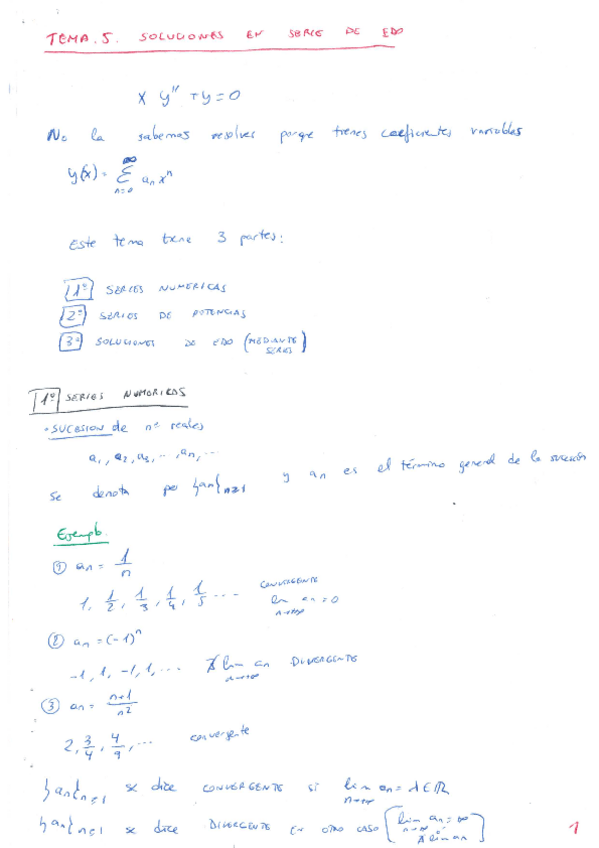 TEMA.5. SOLUCIONES EN SERIE DE EDO
x y'' + y = 0
No la sabemos resolver porque tienes coeficientes variables
y(x) = ∑_{n=0}^{∞} a_n x^n
Este tema tiene 3 partes:
1º SERIES NUMERICAS
2º SERIES DE POTENCIAS
3º SOLUCIONES DE EDO (MEDIANTE SERIES)
1º SERIES NUMERICAS
· SUCESION de nº reales
a_1, a_2, a_3, ..., a_n, ...
Se denota por {a_n}_{n≥1} y a_n es el término general de la sucesión
Ejemplo.
① a_n = 1/n
1, 1/2, 1/3, 1/4, 1/5 ... CONVERGENTE lim_{n→∞} a_n = 0
② a_n = (-1)^n
-1, 1, -1, 1, ... ∄ lim_{n→∞} a_n DIVERGENTE
③ a_n = n+1/n^2
2, 3/4, 4/9, ... convergente
{a_n}_{n≥1} se dice CONVERGENTE si lim_{n→∞} a_n = l ∈ ℝ
{a_n}_{n≥1} se dice DIVERGENTE EN OTRO CASO [lim_{n→∞} a_n = ∞ o ∄ lim a_n]
1